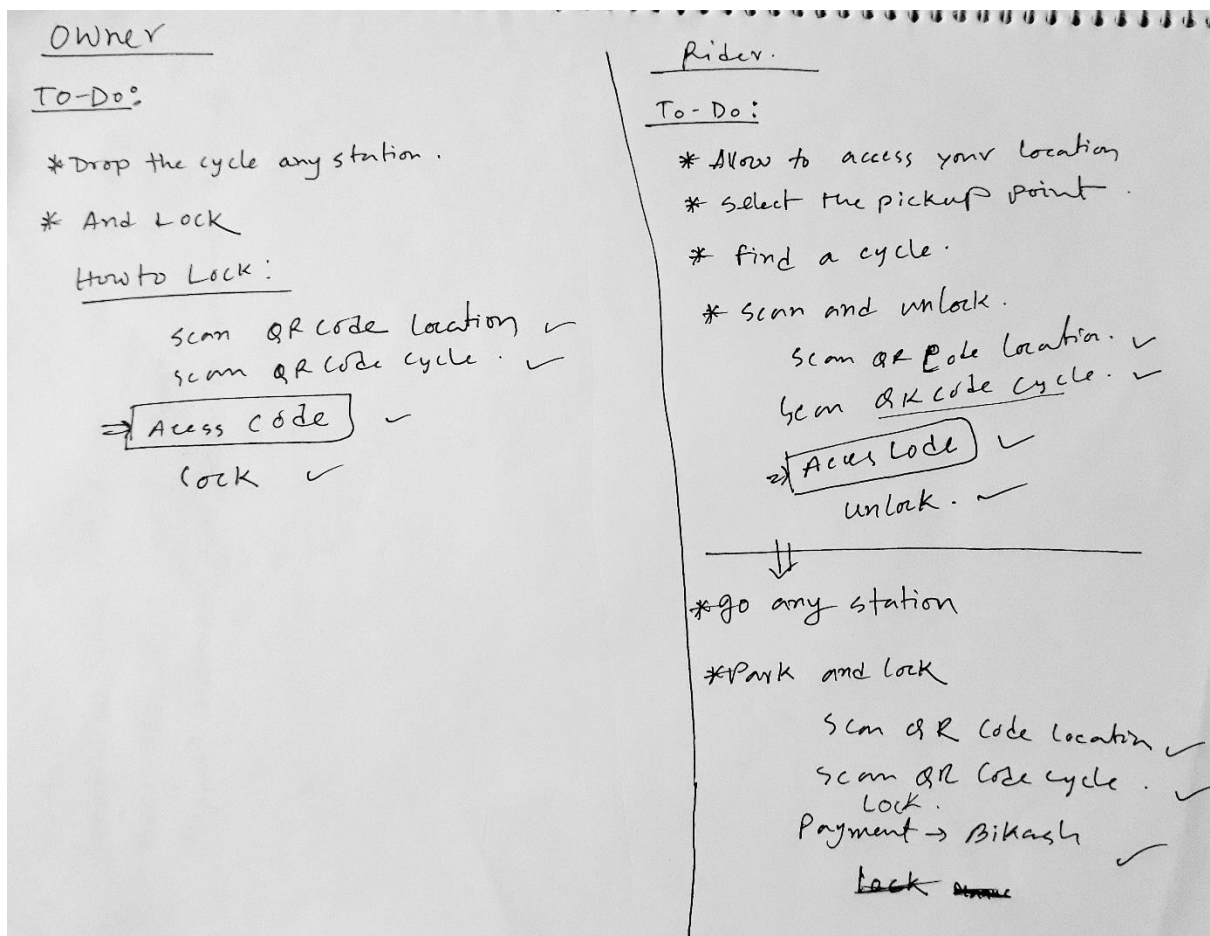 Owner
To-Do:
* Drop the cycle any station.
* And Lock
How to Lock:
Scan QR code location ✓
scan QR code cycle. ✓
⇒ Acess code ✓
lock ✓
Rider.
To-Do:
* Allow to access your location
* Select the pickup point.
* find a cycle.
* Scan and unlock.
Scan QR Code location. ✓
Scan QR code cycle. ✓
⇒ Acces Code ✓
unlock. ✓
⇓
* go any station
* Park and lock
Scan QR Code location ✓
Scan QR Code cycle. ✓
Lock.
Payment → Bikash ✓
Lock